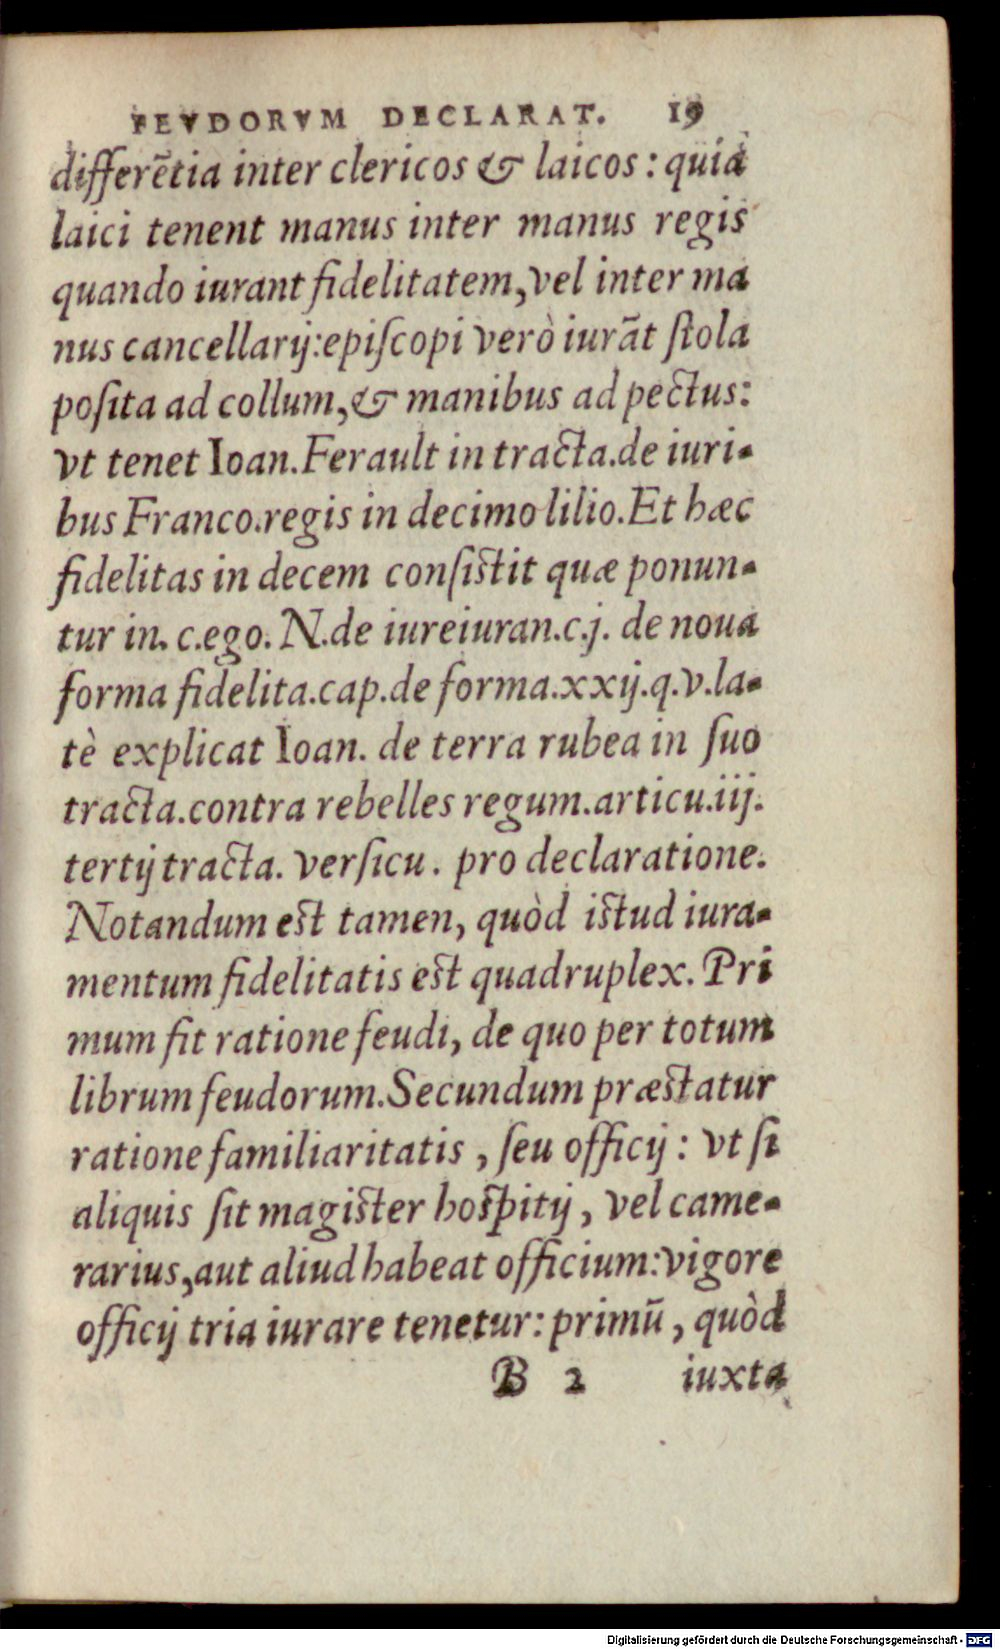 FEVDORVM DECLARAT. 19
differẽtia inter clericos & laicos : quià
laici tenent manus inter manus regis
quando iurant fidelitatem,vel inter ma
nus cancellarij:epiſcopi verò iurãt ſtola
poſita ad collum,& manibus ad pectus:
vt tenet Ioan.Ferault in tracta.de iuri-
bus Franco.regis in decimo lilio.Et hæc
fidelitas in decem conſiſtit quæ ponun-
tur in. c.ego. N.de iureiuran.c.j. de noua
forma fidelita.cap.de forma.xxij.q.v.la-
tè explicat Ioan. de terra rubea in ſuo
tracta.contra rebelles regum.articu.iij.
tertij tracta. verſicu. pro declaratione.
Notandum eſt tamen, quòd iſtud iura-
mentum fidelitatis eſt quadruplex. Pri
mum fit ratione feudi, de quo per totum
librum feudorum.Secundum præſtatur
ratione familiaritatis , ſeu officij : vt ſi
aliquis ſit magiſter hoſpitij , vel came-
rarius,aut aliud habeat officium:vigore
officij tria iurare tenetur: primũ , quòd
B 2 iuxta
Digitalisierung gefördert durch die Deutsche Forschungsgemeinschaft - DFG